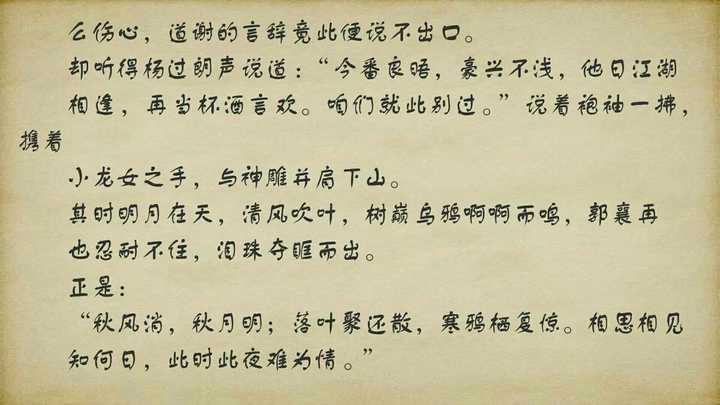 么伤心，道谢的言辞竟此便说不出口。
却听得杨过朗声说道：“今番良晤，豪兴不浅，他日江湖
相逢，再当杯酒言欢。咱们就此别过。”说着袍袖一拂，
携着
小龙女之手，与神雕并肩下山。
其时明月在天，清风吹叶，树巅乌鸦啊啊而鸣，郭襄再
也忍耐不住，泪珠夺眶而出。
正是：
“秋风清，秋月明；落叶聚还散，寒鸦栖复惊。相思相见
知何日，此时此夜难为情。”